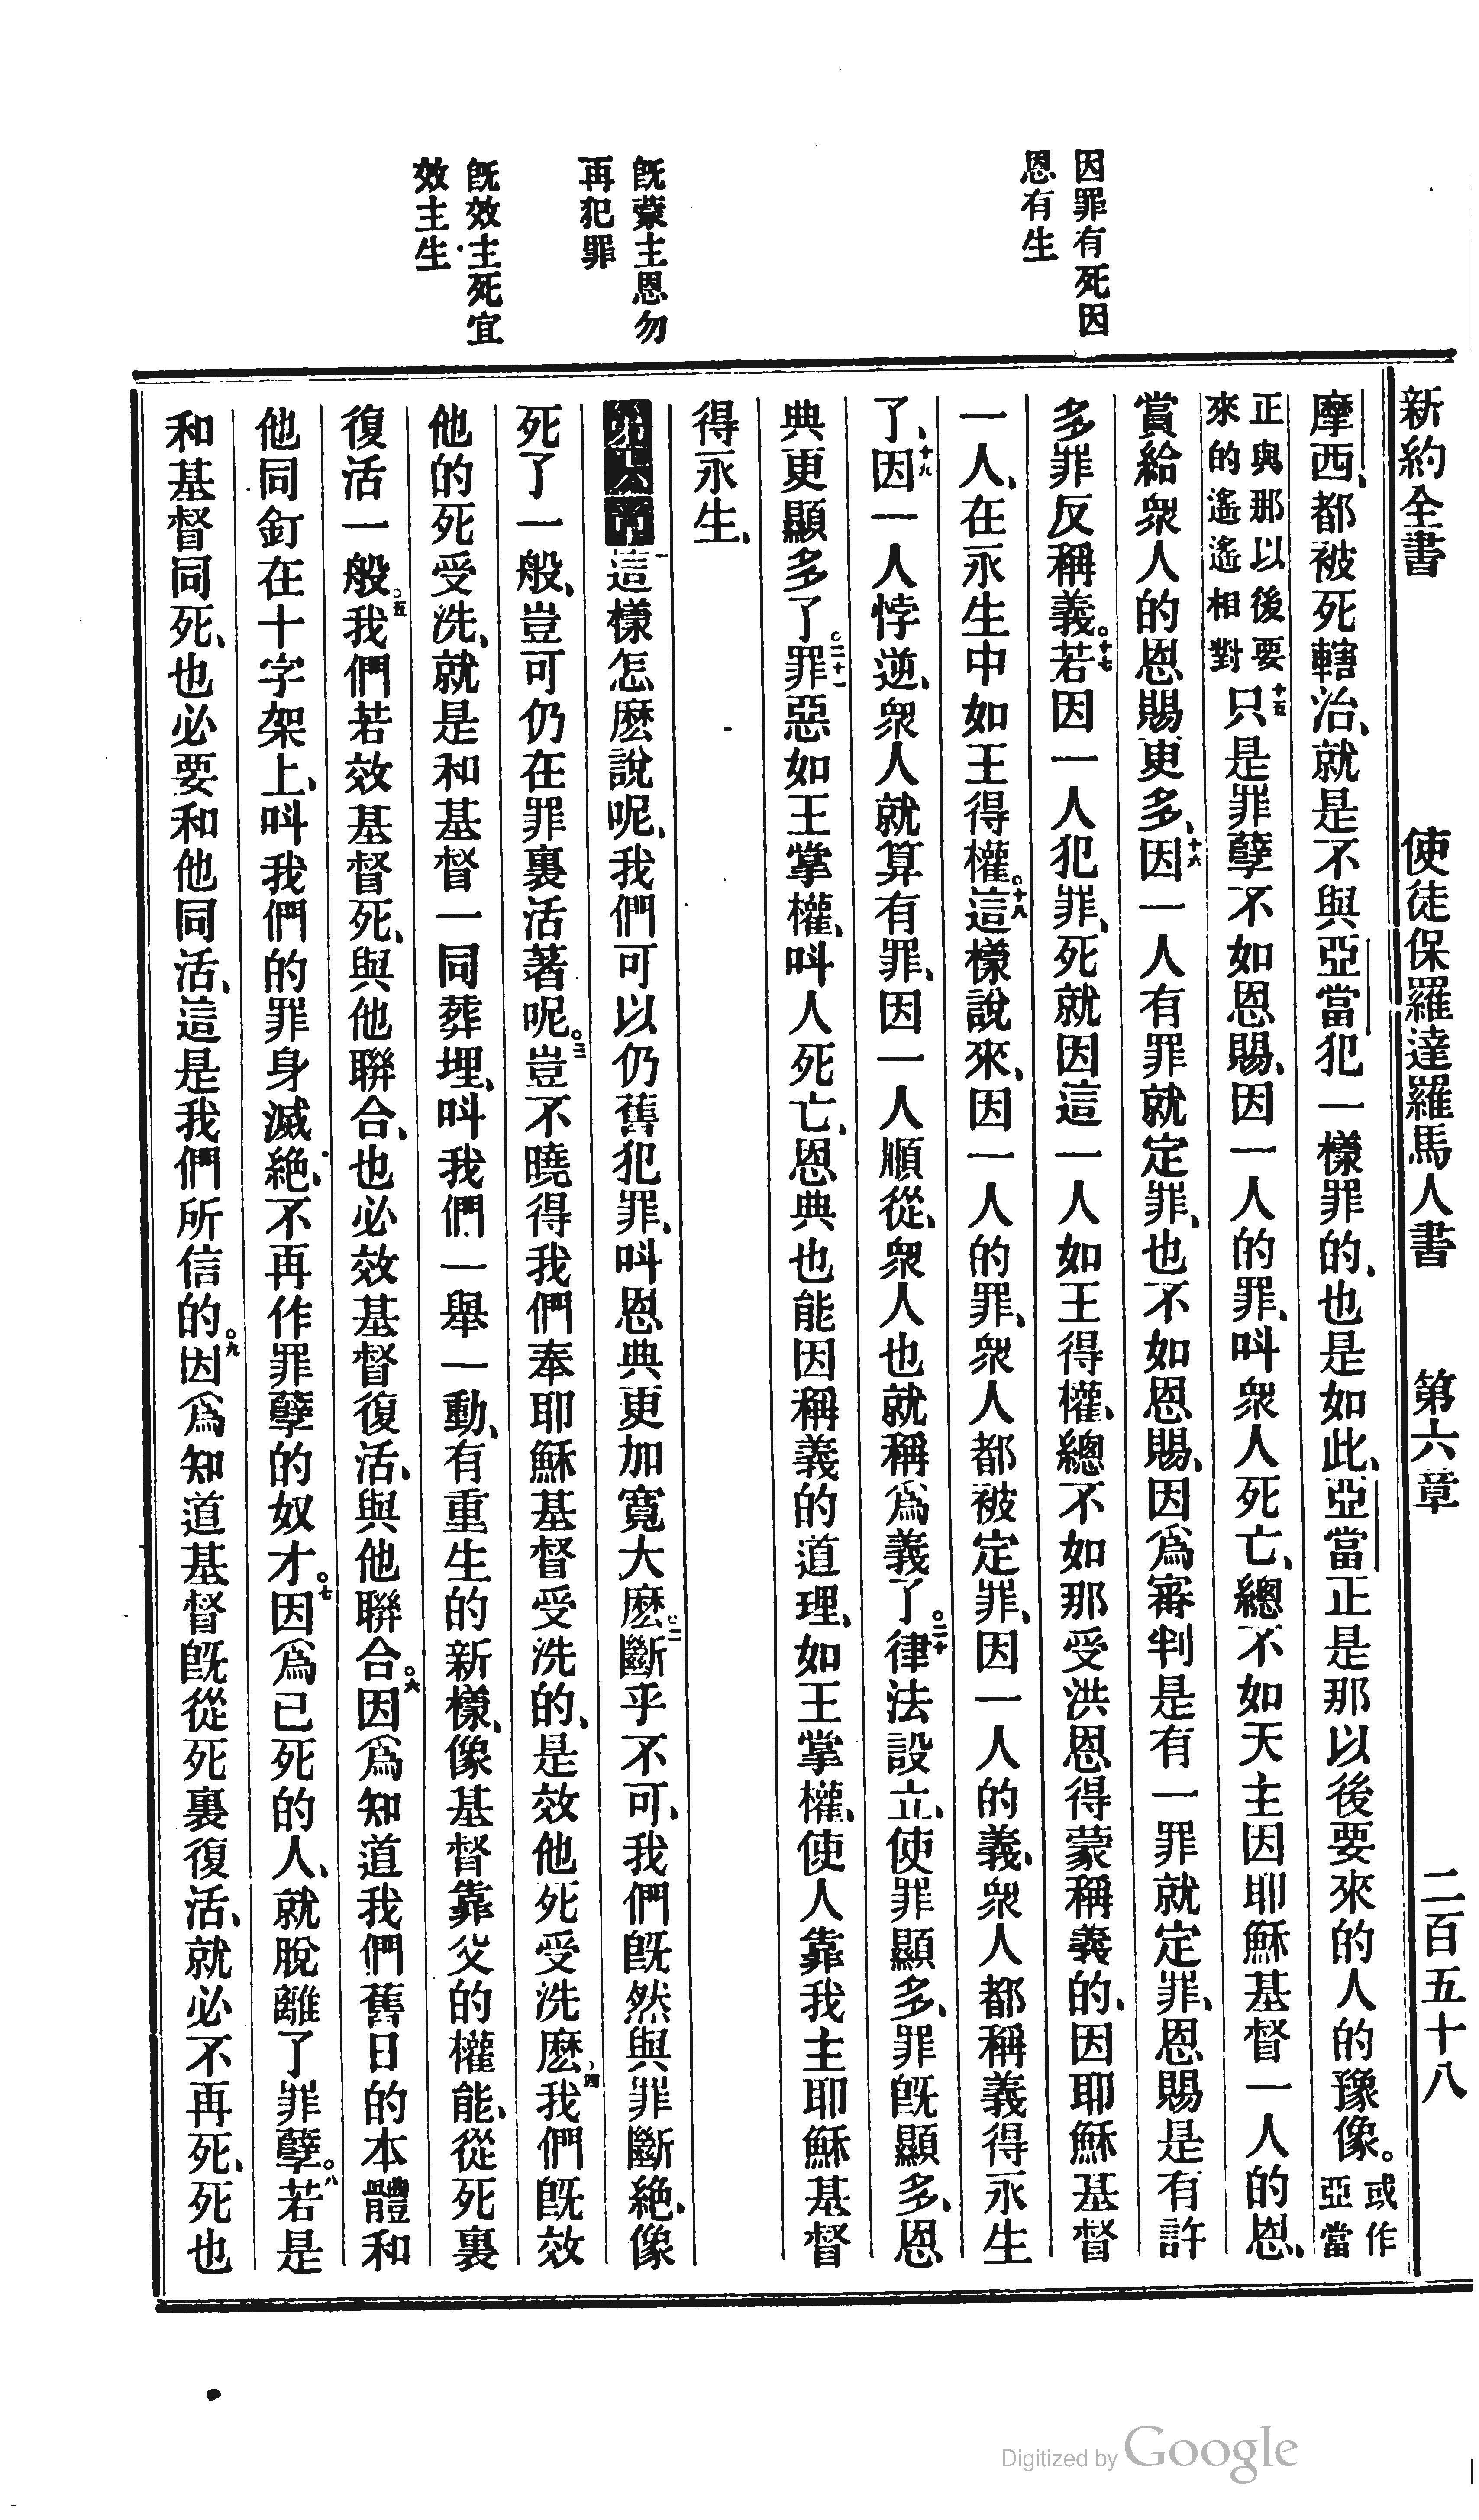 新約全書　使徒保羅達羅馬人書　第六章　二百五十八
因罪有死因
恩有生
既蒙主恩勿
再犯罪
既效主死宜
效主生
摩西、都被死轄治、就是不與亞當犯一樣罪的、也是如此、亞當正是那以後要來的人的豫像。或作亞當
正與那以後要來的遙遙相對十五只是罪孽不如恩賜、因一人的罪、叫衆人死亡、總不如天主因耶穌基督一人的恩、
賞給衆人的恩賜更多、十六因一人有罪就定罪、也不如恩賜、因爲審判是有一罪就定罪、恩賜是有許
多罪反稱義。十七若因一人犯罪、死就因這一人如王得權、總不如那受洪恩得蒙稱義的、因耶穌基督
一人、在永生中如王得權。十八這樣說來、因一人的罪、衆人都被定罪、因一人的義、衆人都稱義得永生
了、十九因一人悖逆、衆人就算有罪、因一人順從、衆人也就稱爲義了。二十律法設立、使罪顯多、罪既顯多、恩
典更顯多了。二十一罪惡如王掌權、叫人死亡、恩典也能因稱義的道理、如王掌權、使人靠我主耶穌基督
得永生、
第六章一這樣怎麽說呢、我們可以仍舊犯罪、叫恩典更加寬大麽。二斷乎不可、我們既然與罪斷絶、像
死了一般、豈可仍在罪裏活著呢。三豈不曉得我們奉耶穌基督受洗的、是效他死受洗麽、四我們既效
他的死受洗、就是和基督一同葬埋、叫我們一舉一動、有重生的新樣、像基督靠父的權能、從死裏
復活一般。五我們若效基督死、與他聯合、也必效基督復活、與他聯合。六因爲知道我們舊日的本體和
他同釘在十字架上、叫我們的罪身滅絶、不再作罪孽的奴才。七因爲已死的人、就脫離了罪孽。八若是
和基督同死、也必要和他同活、這是我們所信的。九因爲知道基督既從死裏復活、就必不再死、死也
Digitized by Google